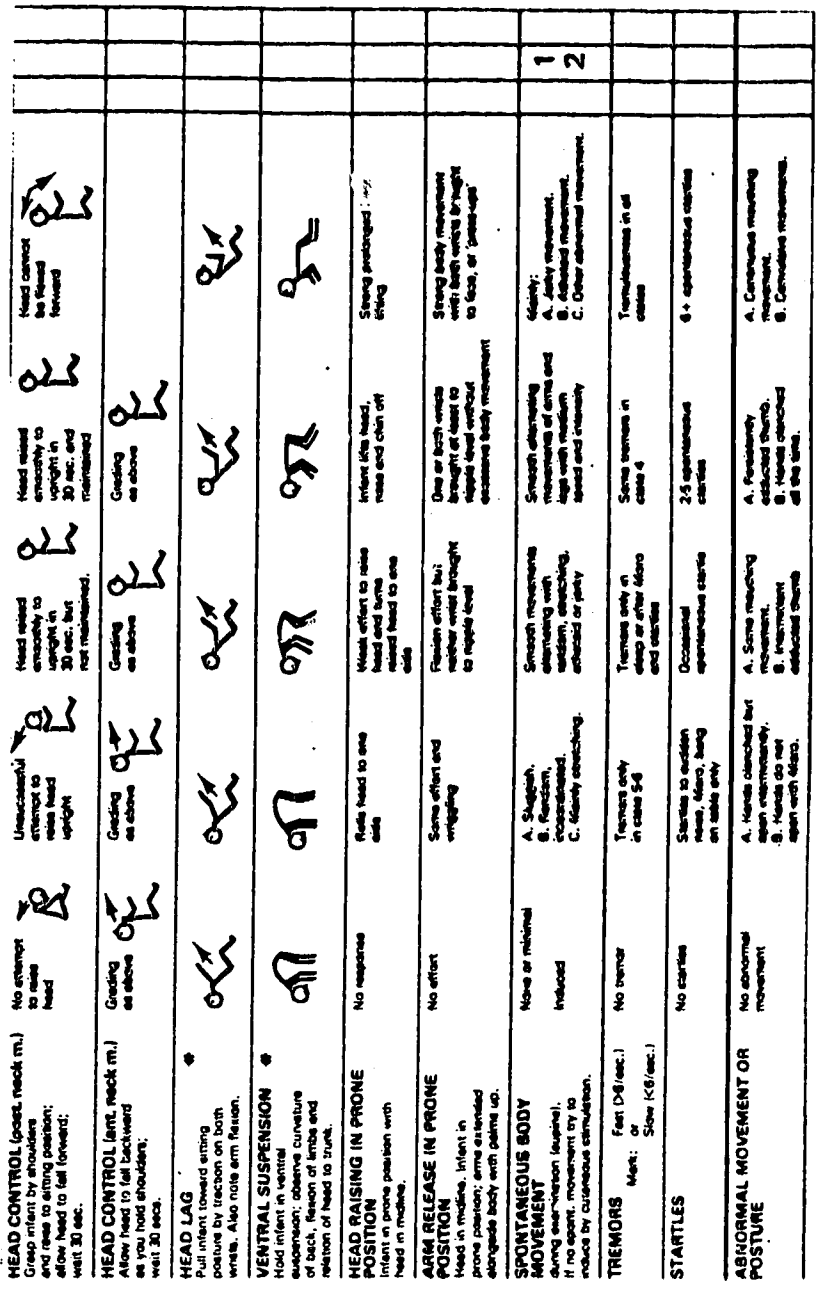 HEAD CONTROL (post. neck m.)
Grasp infant by shoulders
and raise to sitting position;
allow head to fall forward;
wait 30 sec.
No attempt
to raise
head
Unsuccessful
attempt to
raise head
upright
Head raised
smoothly to
upright in
30 sec. but
not maintained.
Head raised
smoothly to
upright in
30 sec. and
maintained
Head cannot
be flexed
forward
HEAD CONTROL (ant. neck m.)
Allow head to fall backward
as you hold shoulders;
wait 30 secs.
Grading
as above
Grading
as above
Grading
as above
Grading
as above
HEAD LAG *
Pull infant toward sitting
posture by traction on both
wrists. Also note arm flexion.
VENTRAL SUSPENSION *
Hold infant in ventral
suspension; observe curvature
of back, flexion of limbs and
relation of head to trunk.
HEAD RAISING IN PRONE
POSITION
Infant in prone position with
head in midline.
No response
Rolls head to one
side
Weak effort to raise
head and turns
raised head to one
side
Infant lifts head,
nose and chin off
Strong prolonged
lifting
ARM RELEASE IN PRONE
POSITION
Head in midline. Infant in
prone position; arms extended
alongside body with palms up.
No effort
Some effort and
wriggling
Flexion effort but
neither wrist brought
to nipple level
One or both wrists
brought at least to
nipple level without
excessive body movement
Strong body movement
with both wrists brought
to face, or 'press-ups'
SPONTANEOUS BODY
MOVEMENT
during examination (supine).
If no spont. movement try to
induce by cutaneous stimulation.
None or minimal
Induced
A. Sluggish.
B. Random,
incoordinated.
C. Mainly stretching.
Smooth movements
alternating with
random, stretching,
athetoid or jerky
Smooth alternating
movements of arms and
legs with medium
speed and intensity
Mainly:
A. Jerky movement.
B. Athetoid movement.
C. Other abnormal movement.
1
2
TREMORS
Mark: Fast (>6/sec.)
or
Slow (<6/sec.)
No tremor
Tremors only
in state 5-6
Tremors only in
sleep or after Moro
and startles
Some tremors in
state 4
Tremulousness in all
states
STARTLES
No startles
Startles to sudden
noise, Moro, bang
on table only
Occasional
spontaneous startle
2-5 spontaneous
startles
6+ spontaneous startles
ABNORMAL MOVEMENT OR
POSTURE
No abnormal
movement
A. Hands clenched but
open intermittently.
B. Hands do not
open with Moro.
A. Some mouthing
movement.
B. Intermittent
adducted thumb
A. Persistently
adducted thumb.
B. Hands clenched
all the time.
A. Continuous mouthing
movement.
B. Convulsive movements.